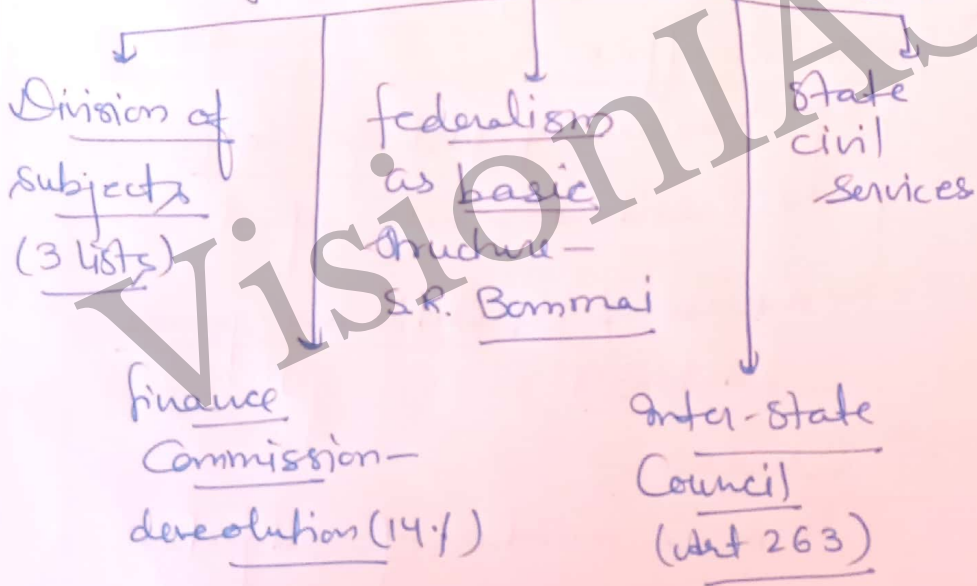 Division of
subjects
(3 lists)
federalism
as basic
structure –
S.R. Bommai
State
civil
services
finance
Commission –
devolution (14%)
Inter-State
Council
(Art 263)
VisionIAS